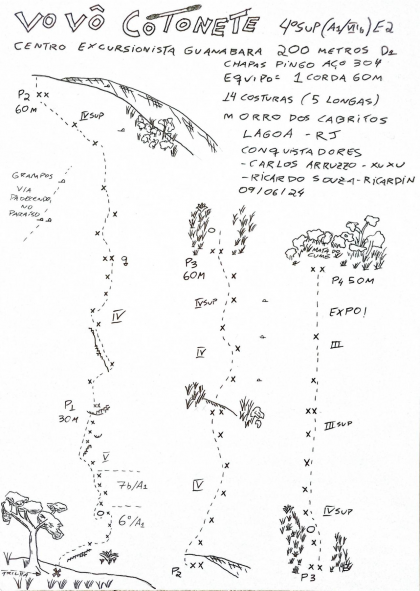 VOVÔ COTONETE 4ºSUP (A1/VIIb) E2
CENTRO EXCURSIONISTA GUANABARA 200 METROS D2
CHAPAS PINGO AÇO 304
EQUIPO: 1 CORDA 60M
14 COSTURAS (5 LONGAS)
MORRO DOS CABRITOS
LAGOA - RJ
CONQUISTADORES
- CARLOS ARRUZZO - XUXU
- RICARDO SOUZA - RICARDIN
09/06/24
P2
60M
IVSUP
GRAMPOS
VIA
PADECENDO
NO
PARAÍSO
IV
P1
30M
V
7b/A1
6º/A1
TRILHA
P3
60M
IVSUP
IV
V
P2
MATA DO
CUME
P4 50M
EXPO!
III
IIISUP
IVSUP
P3